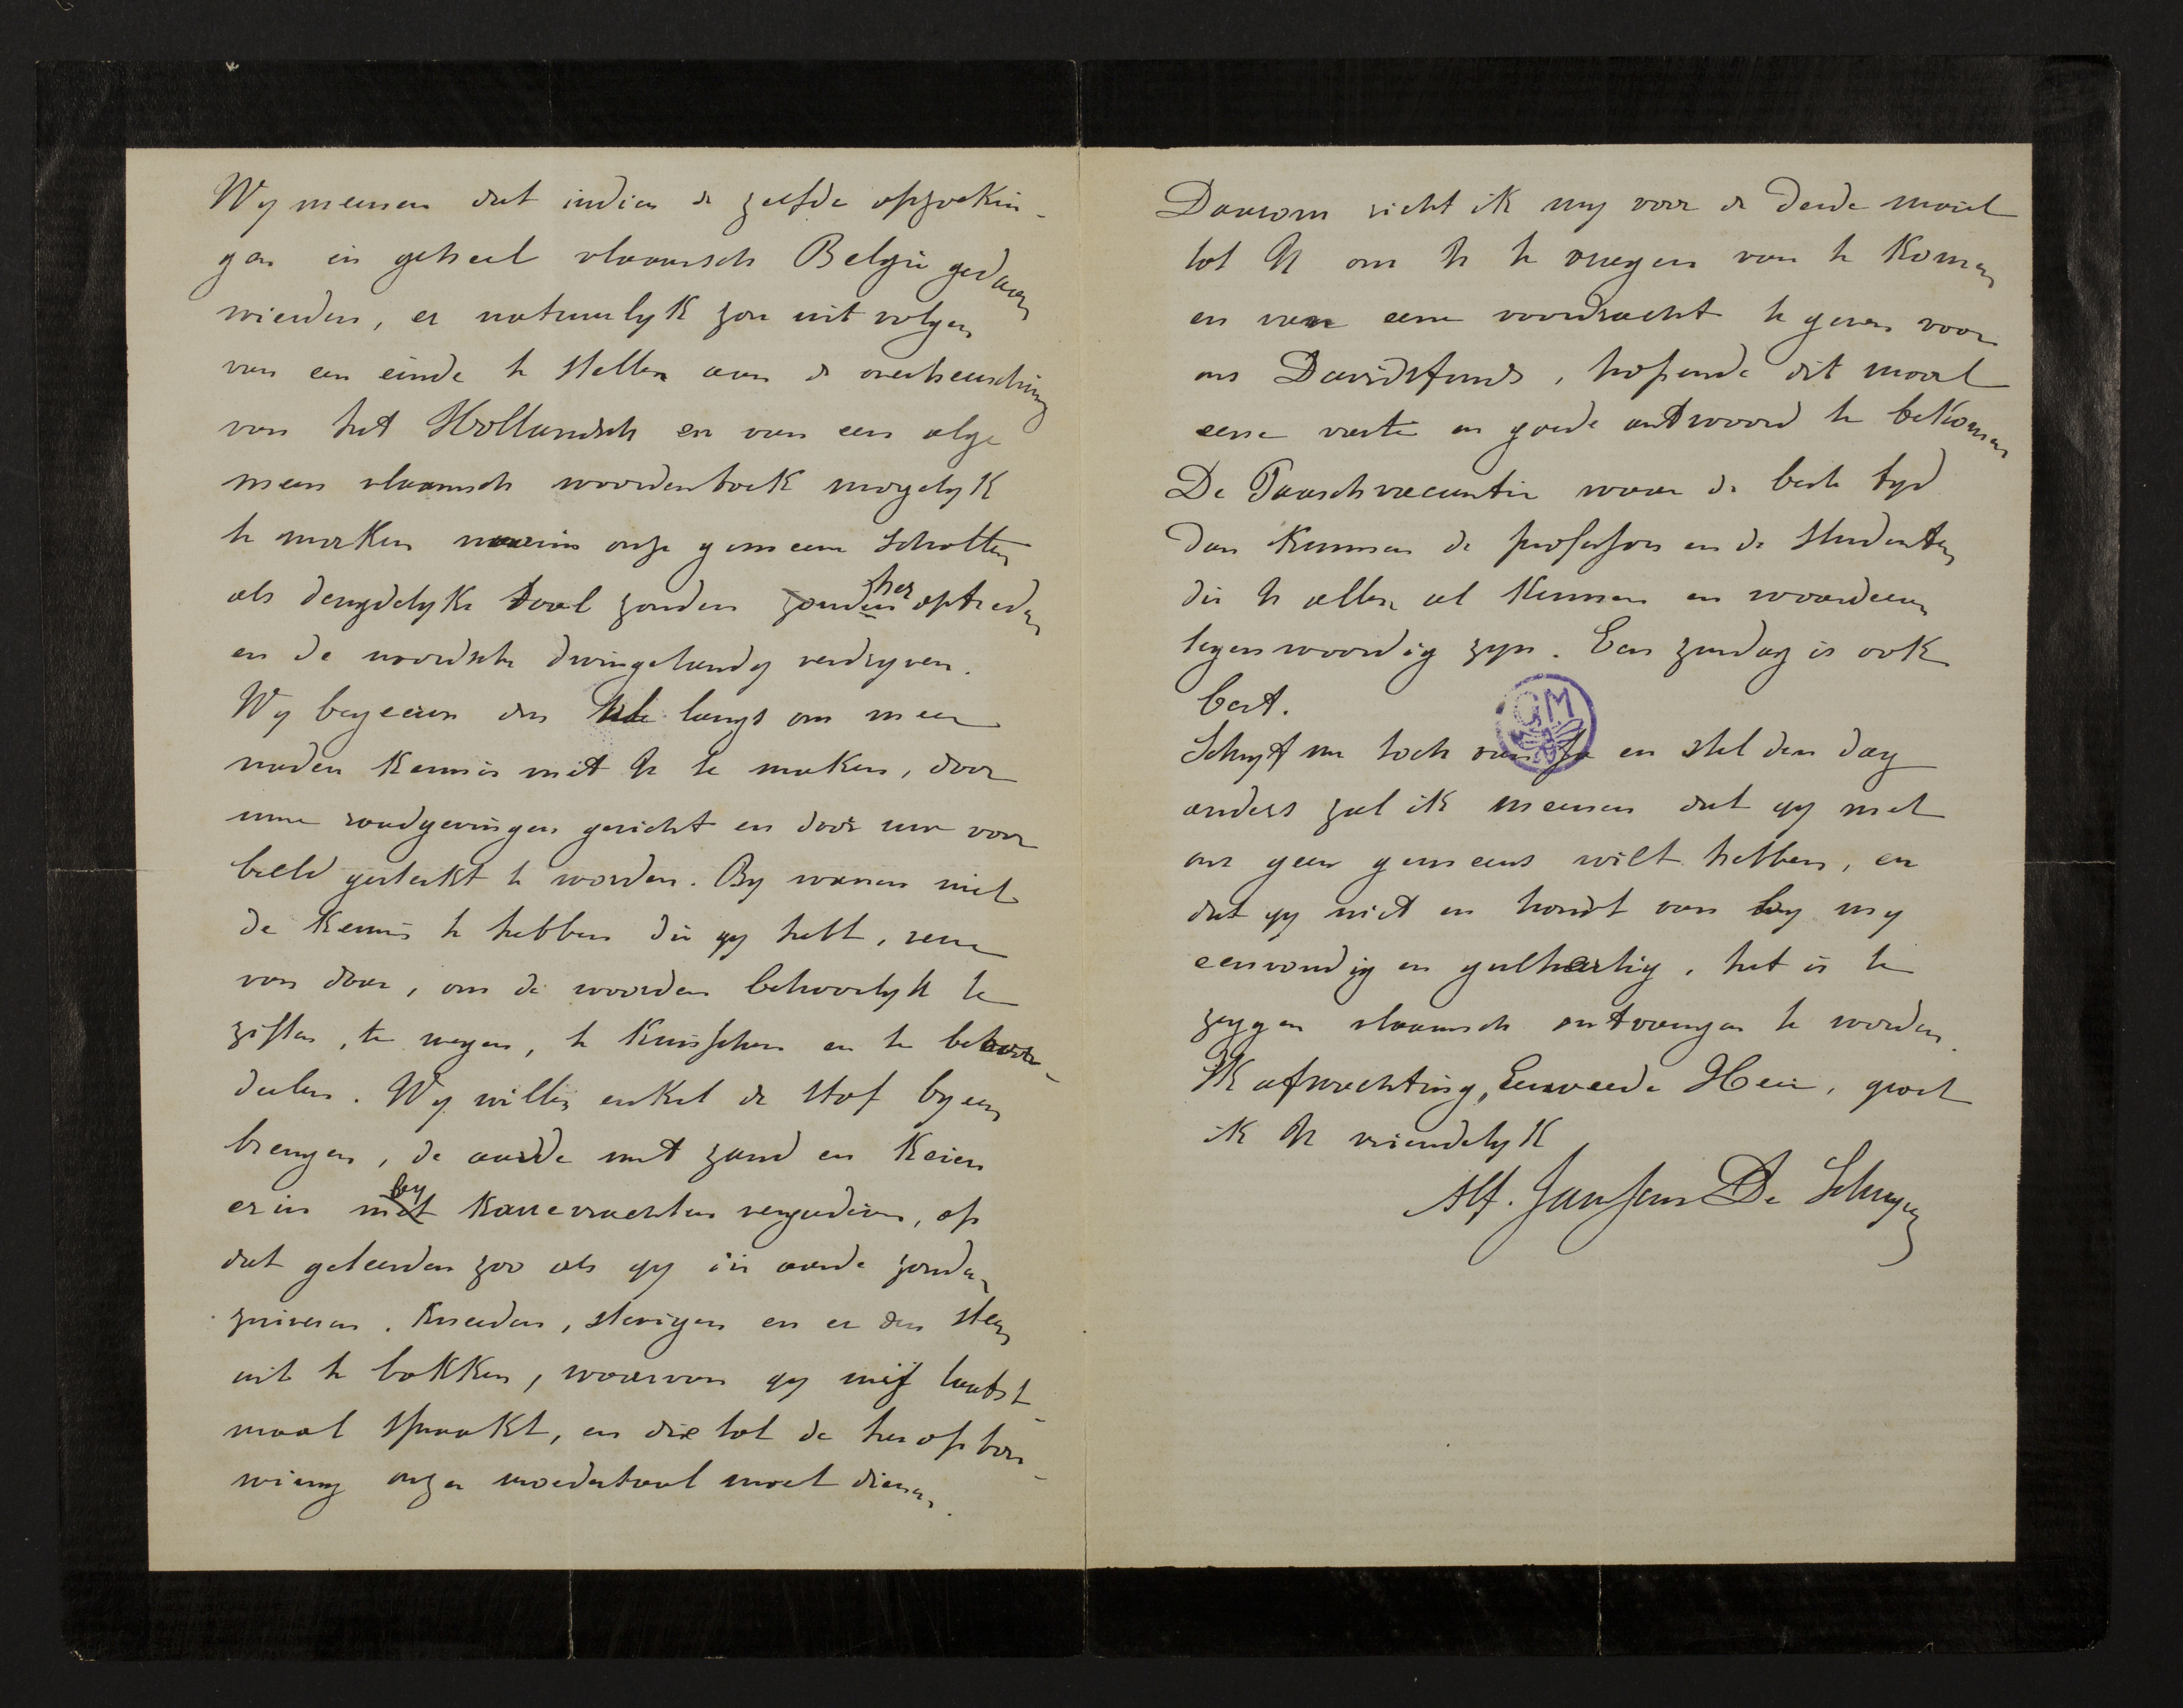 Wy meenen dat indien de zelfde opzoekin-
gen in geheel vlaamsch Belgie gedaan
wierden, er natuurlyk zou uit volgen
van een einde te stellen aan de overheersching
van het Hollandsch en van een alge
meen vlaamsch woordenboek mogelyk
te maken waarin onze gemeene schatten
als deugdelyke taal zouden heroptreden
en de noordsche dwingelandy verdryven.
Wy begeeren dus langs om meer
nader kennis met U te maken, door
uwe raadgevingen gericht en door uw voor
beeld gesterkt te worden. By wanen niet
de kennis te hebben die gy hebt, verre
van daar, om de woorden behoorlyk te
ziften, te wegen, te kuisschen en te beoor-
deelen. Wy willen enkel de stof byeen
brengen, de aarde met zand en keien
er in by karrevrachten vergaderen, op
dat geleerden zoo als gy die aarde zouden
zuiveren. Kneeden, stevigen en er den steen
uit te bakken, waarvan gy mij laatst-
maal spraakt, en die tot de heropbou-
wing onzer moedertaal moet dienen.
Daarom richt ik my voor de derde maal
tot U om U te vragen van te komen
en van eene voordracht te geven voor
ons Davidsfonds, hopende dit maal
eene vaste en goede antwoord te bekomen
De Paaschvacantie waar de beste tyd
dan kunnen de professors en de studenten
die U allen al kennen en waardeeren
tegenwoordig zyn. Een zondag is ook
best.
Schryf me toch van Ja en stel den dag
anders zal ik meenen dat gy met
ons geen gemeens wilt hebben, en
dat gy niet en houdt van by my
eenvoudig en gulhartig, het is te
zeggen vlaamsch ontvangen te worden.
In afwachting, Eerweerde Heer, groet
ik U vriendelyk
Alf. Janssens De Schryver
GM